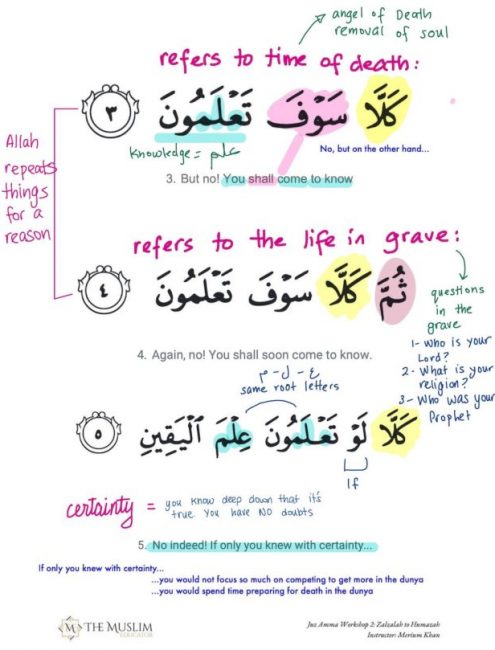 angel of Death
removal of soul
refers to time of death:
كَلَّا سَوْفَ تَعْلَمُونَ ٣
Knowledge = علم
No, but on the other hand...
3. But no! You shall come to know
Allah
repeats
things
for a
reason
refers to the life in grave:
ثُمَّ كَلَّا سَوْفَ تَعْلَمُونَ ٤
questions
in the
grave
1- Who is your
Lord?
2- What is your
religion?
3- Who was your
Prophet
4. Again, no! You shall soon come to know.
ع - ل - م
same root letters
كَلَّا لَوْ تَعْلَمُونَ عِلْمَ ٱلْيَقِينِ ٥
If
certainty = you know deep down that it's
true. You have NO doubts
5. No indeed! If only you knew with certainty...
If only you knew with certainty...
...you would not focus so much on competing to get more in the dunya
...you would spend time preparing for death in the dunya
M THE MUSLIM
EDUCATOR
Juz Amma Workshop 2: Zalzalah to Humazah
Instructor: Merium Khan